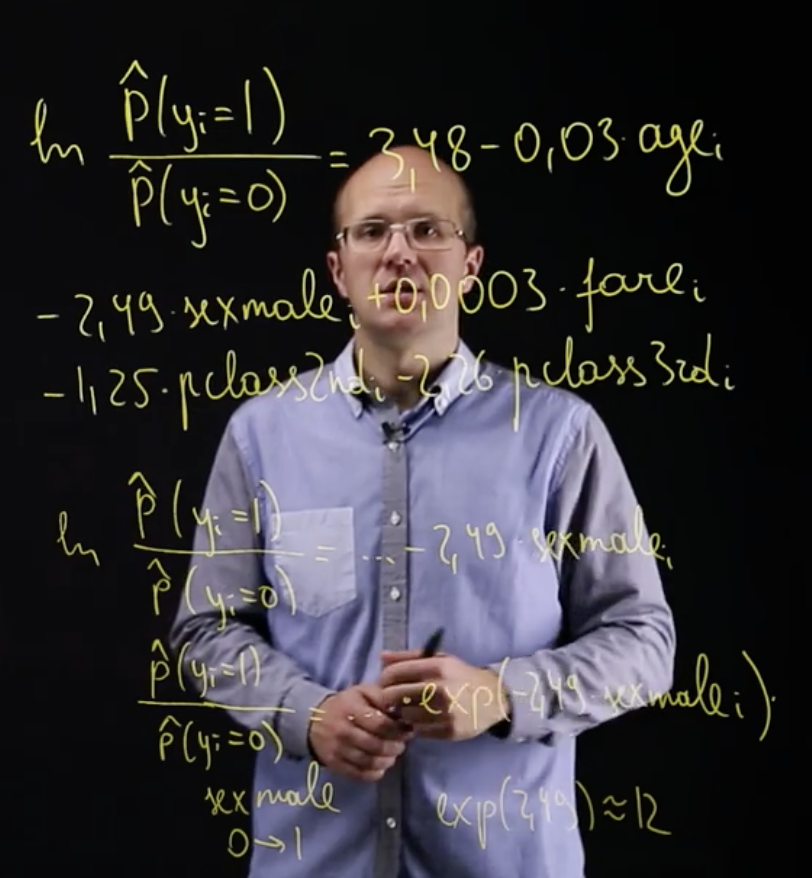 ln P̂(yᵢ=1) / P̂(yᵢ=0) = 3,48 - 0,03·ageᵢ
-2,49·sexmaleᵢ +0,0003·fareᵢ
-1,25·pclass2ndᵢ -2,26·pclass3rdᵢ
ln P̂(yᵢ=1) / P̂(yᵢ=0) = ... -2,49·sexmaleᵢ
P̂(yᵢ=1) / P̂(yᵢ=0) = ...·exp(-2,49·sexmaleᵢ)·
sexmale
0→1
exp(2,49)≈12